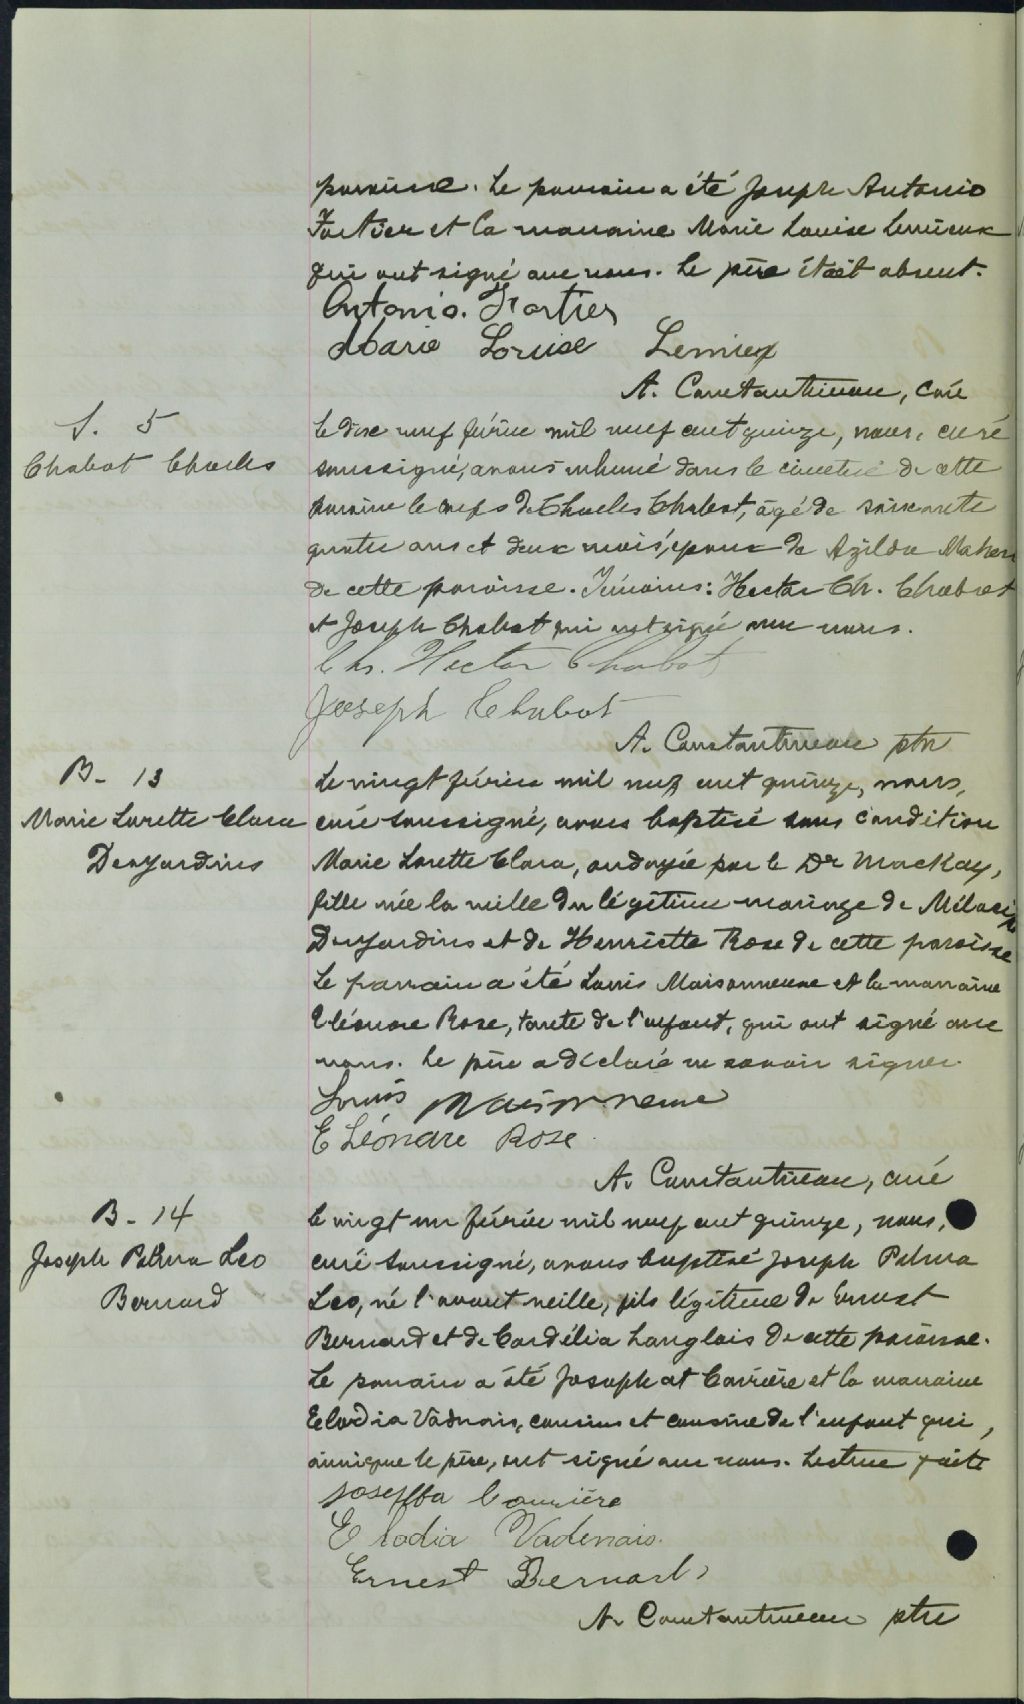 paroisse. Le parrain a été Joseph Antonio
Fortier et la marraine Marie Louise Lemieux
qui ont signé avec nous. Le père était absent.
Antonio. Fortier
Marie Louise Lemieux
A. Constantineau, curé
S. 5
Chabot Charles
Le dix neuf février mil neuf cent quinze, nous, curé
soussigné, avons inhumé dans le cimetière de cette
paroisse le corps de Charles Chabot, âgé de soixante
quatre ans et deux mois, époux de Azilda
de cette paroisse. Témoins: Hector Ch. Chabot
et Joseph Chabot qui ont signé avec nous.
Chs. Hector Chabot
Joseph Chabot
A. Constantineau ptre
B- 13
Marie Lorette Clara
Desjardins
Le vingt février mil neuf cent quinze, nous,
curé soussigné, avons baptisé sous condition
Marie Lorette Clara, ondoyée par le Dr MacKay,
fille née la veille du légitime mariage de
Desjardins et de Henriette Rose de cette paroisse
Le parrain a été Louis Maisonneuve et la marraine
Eléonore Rose, tante de l'enfant, qui ont signé avec
nous. Le père a déclaré ne savoir signer.
Louis Maisonneuve
Eléonare Rose.
A. Constantineau, curé
B- 14
Joseph Palma Leo
Bernard
Le vingt un février mil neuf cent quinze, nous,
curé soussigné, avons baptisé Joseph Palma
Leo, né l'avant veille, fils légitime de Ernest
Bernard et de Cordélia Langlois de cette paroisse.
Le parrain a été Josaphat Carrière et la marraine
Elodia Vadnais, cousins et cousine de l'enfant qui,
ainsi que le père, ont signé avec nous. Lecture faite
Carrière
Elodia Vadenais.
Ernest Bernard
A. Constantineau ptre